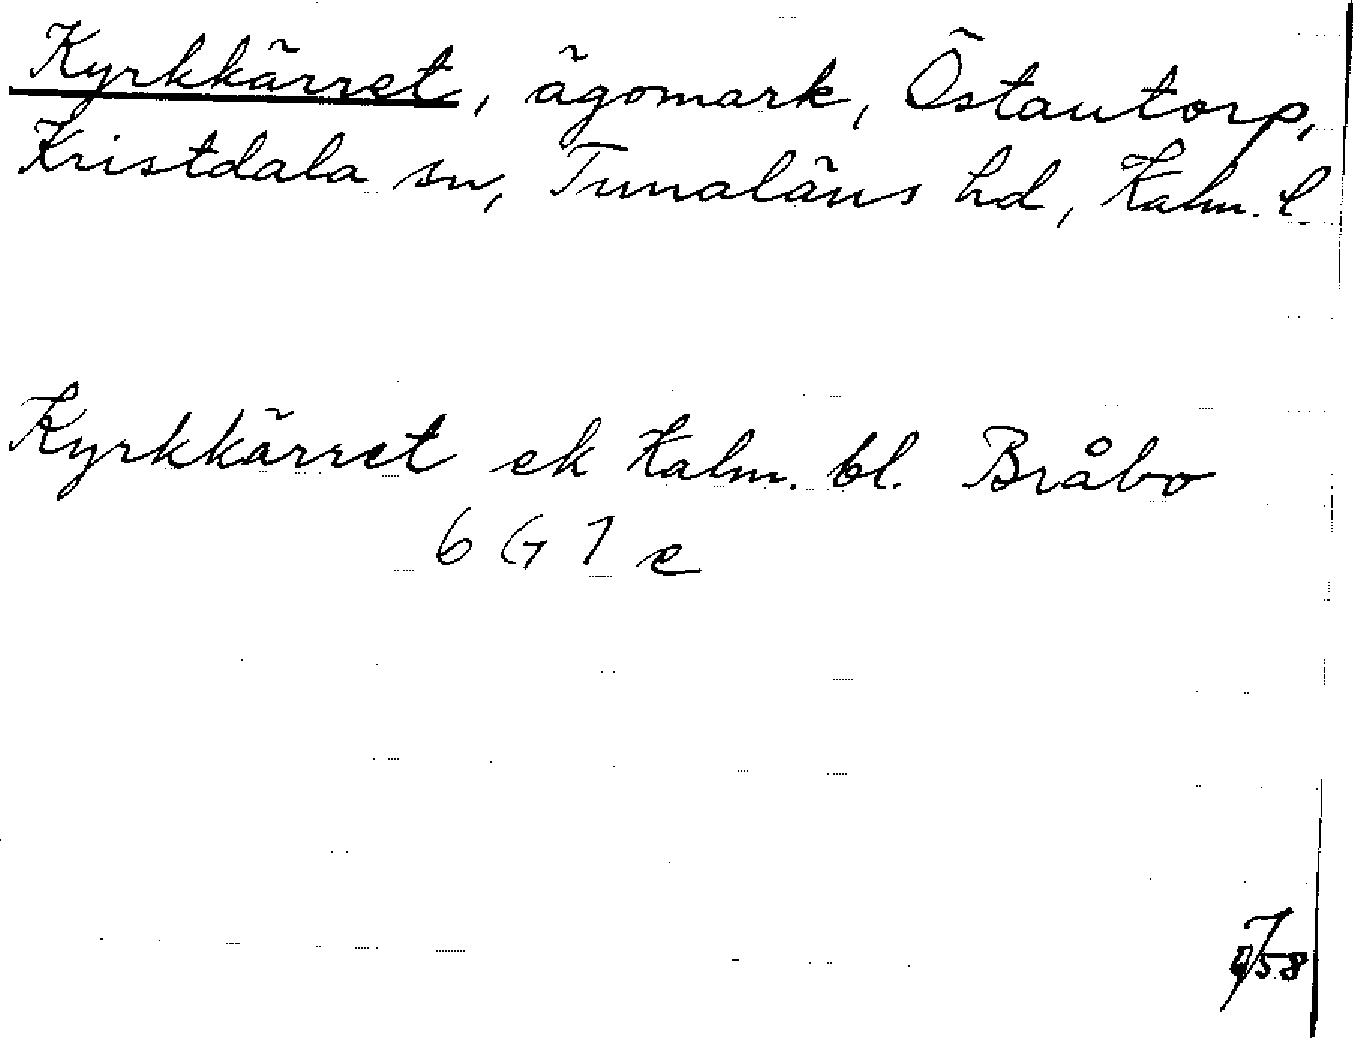 Kyrkkärret, ägomark, Östantorp,
Kristdala sn, Tunaläns hd, Kalm. l
Kyrkkärret ek Kalm. bl. Bråbo
6 G 7 e